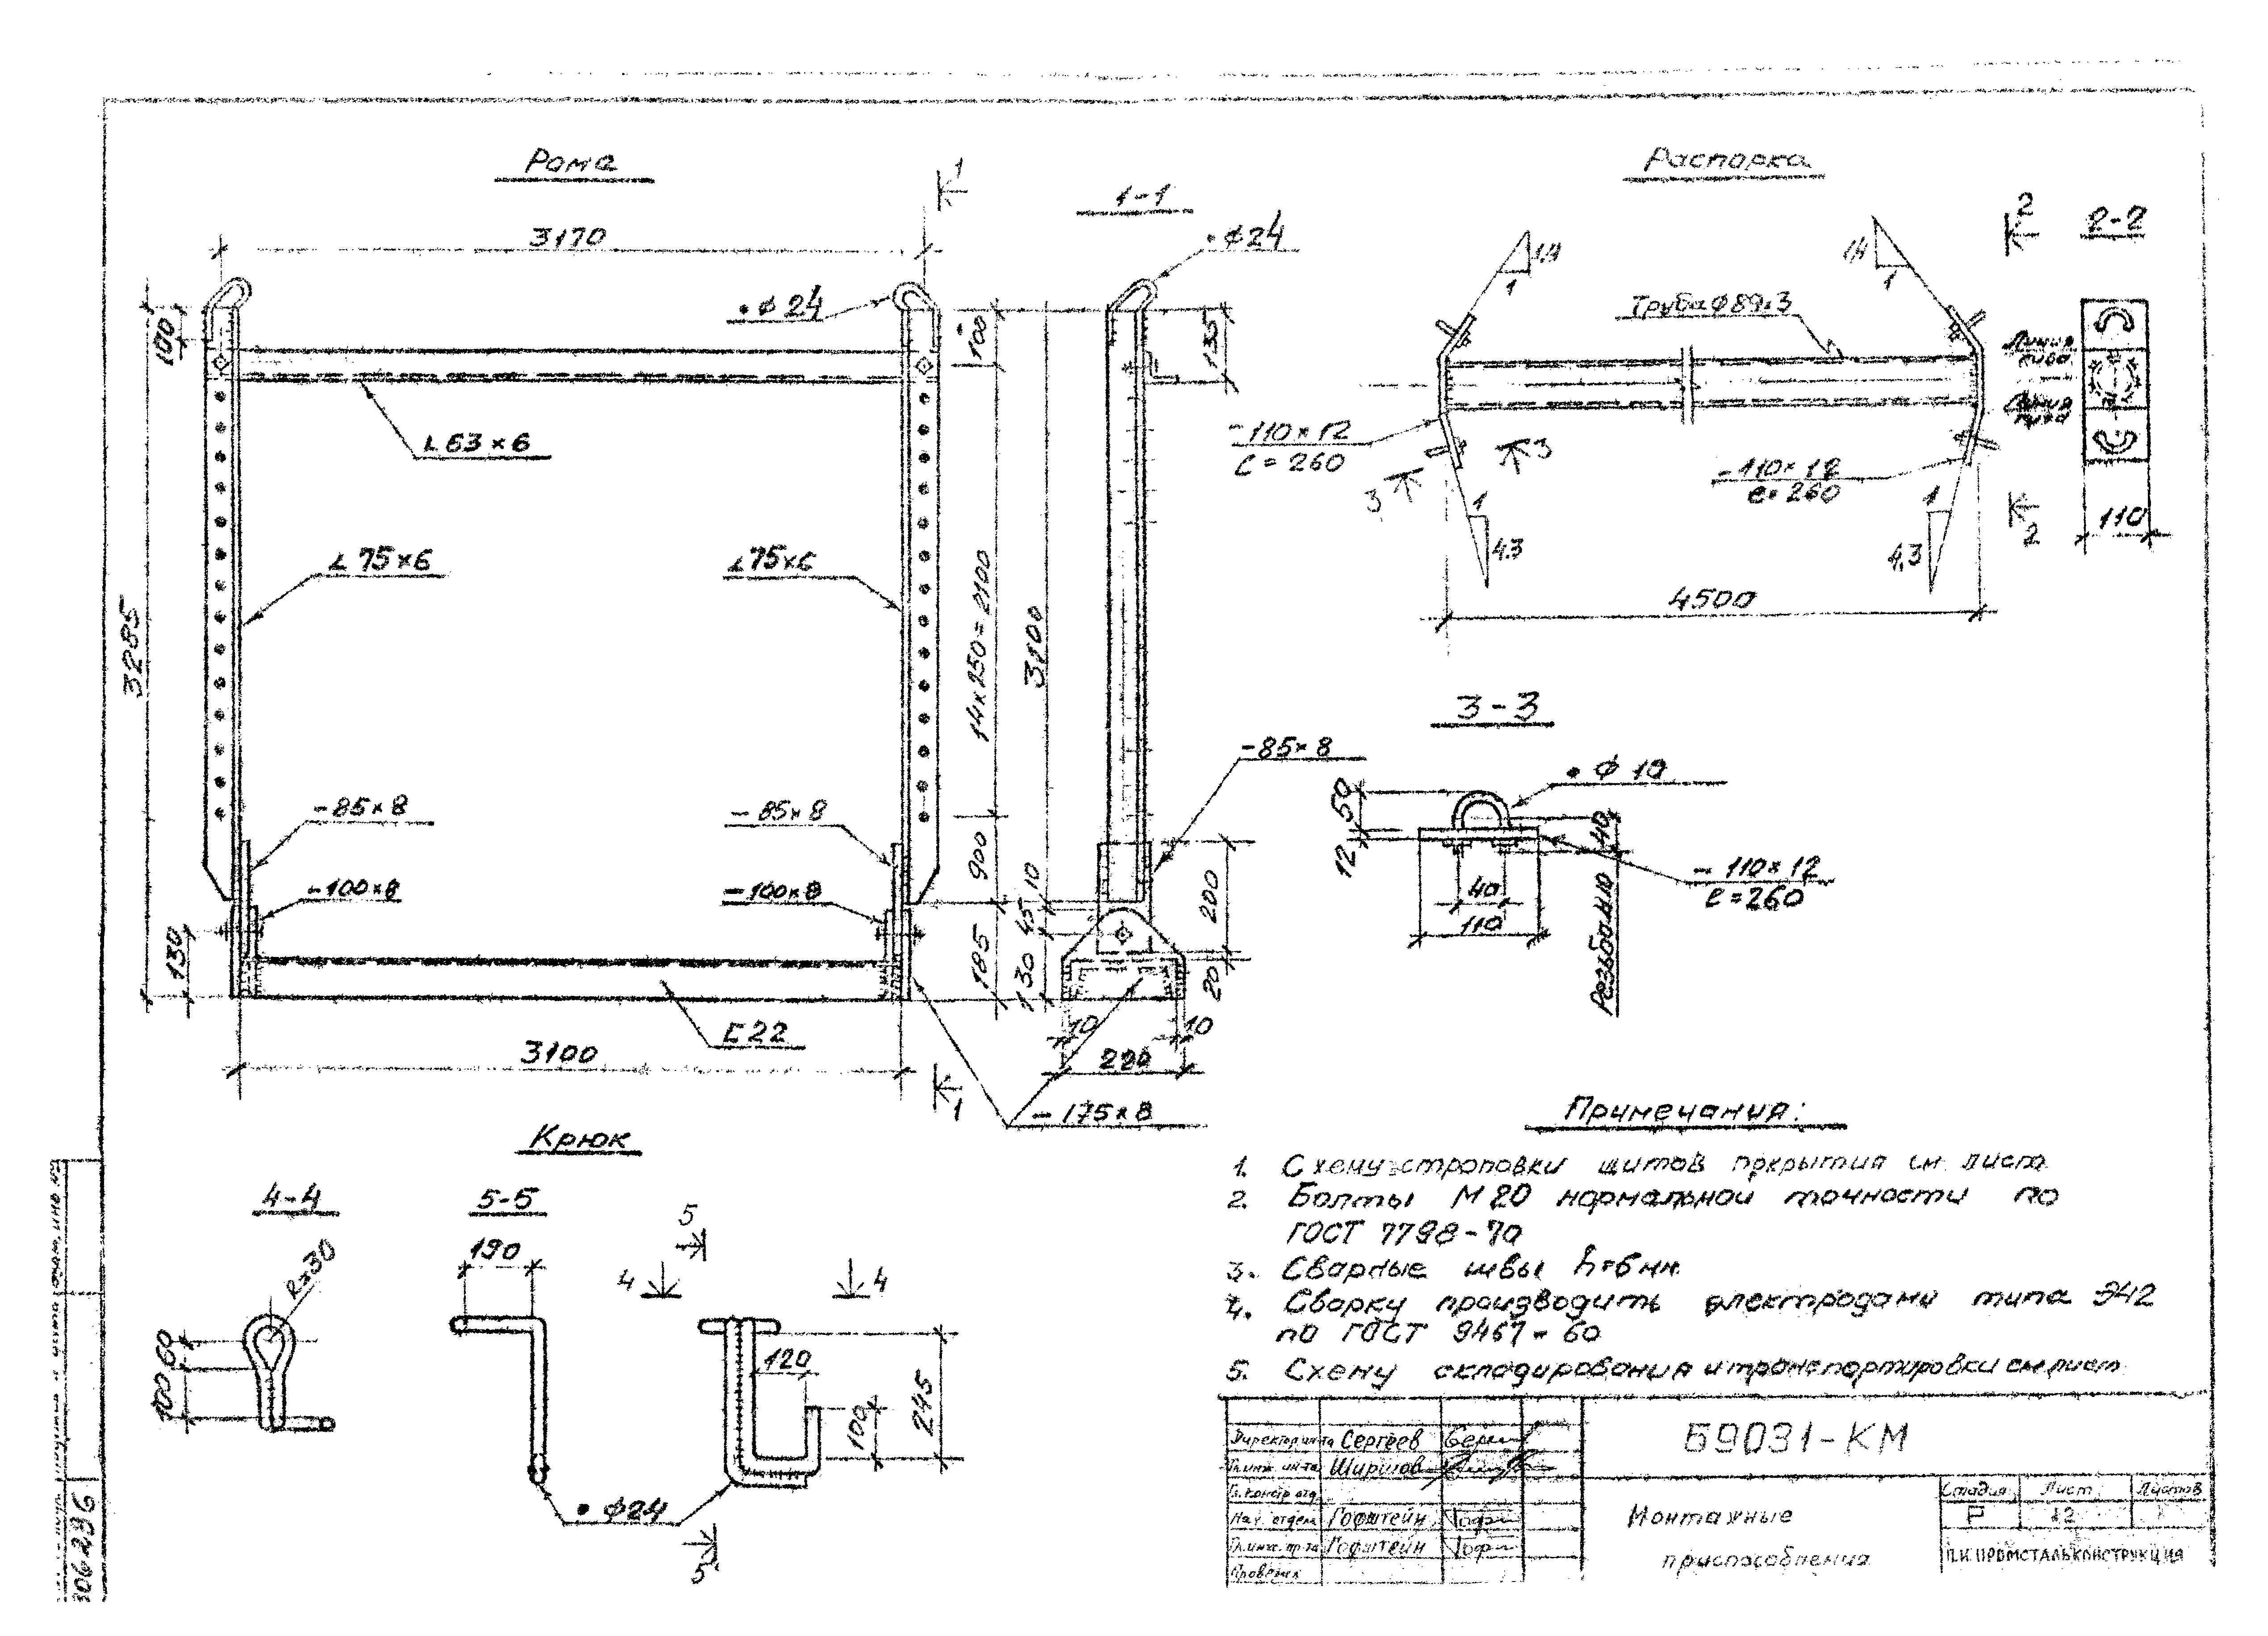 Рама
3170
100
• ф 24
∟63×6
∟75×6
∟75×6
3285
-85×8
-85×8
-100×8
-100×8
130
[22
3100
-175×8
100
14×250=2100
900
185
1
1
1-1
• ф24
135
3100
-85×8
10
45
130
200
20
10
10
220
Распорка
1
1
Труба ф89×3
-110×12
ℓ=260
-110×12
ℓ=260
3
3
1
4,3
1
4,3
4500
2
2
2-2
Линия
сгиба
Линия
сгиба
110
3-3
50
12
• ф 10
40
Резьба М10
-110×12
ℓ=260
40
110
Крюк
4-4
R=30
60
100
5-5
190
• ф24
5
5
4
4
120
100
245
Примечания:
1. Схему строповки щитов покрытия см. лист
2. Болты М 20 нормальной точности по
ГОСТ 7798-70
3. Сварные швы h=6мм
4. Сварку производить электродами типа Э42
по ГОСТ 9467-60
5. Схему складирования и транспортировки см лист
Директор ин-та Сергеев
Гл.инж. ин-та Ширшов
Гл. констр отд
Нач. отдела Гофштейн
Гл.инж. пр-та Гофштейн
Проверил
Б9031-КМ
Монтажные
приспособления
Стадия Лист Листов
Р 12
П.И. ПРОМСТАЛЬКОНСТРУКЦИЯ
306296